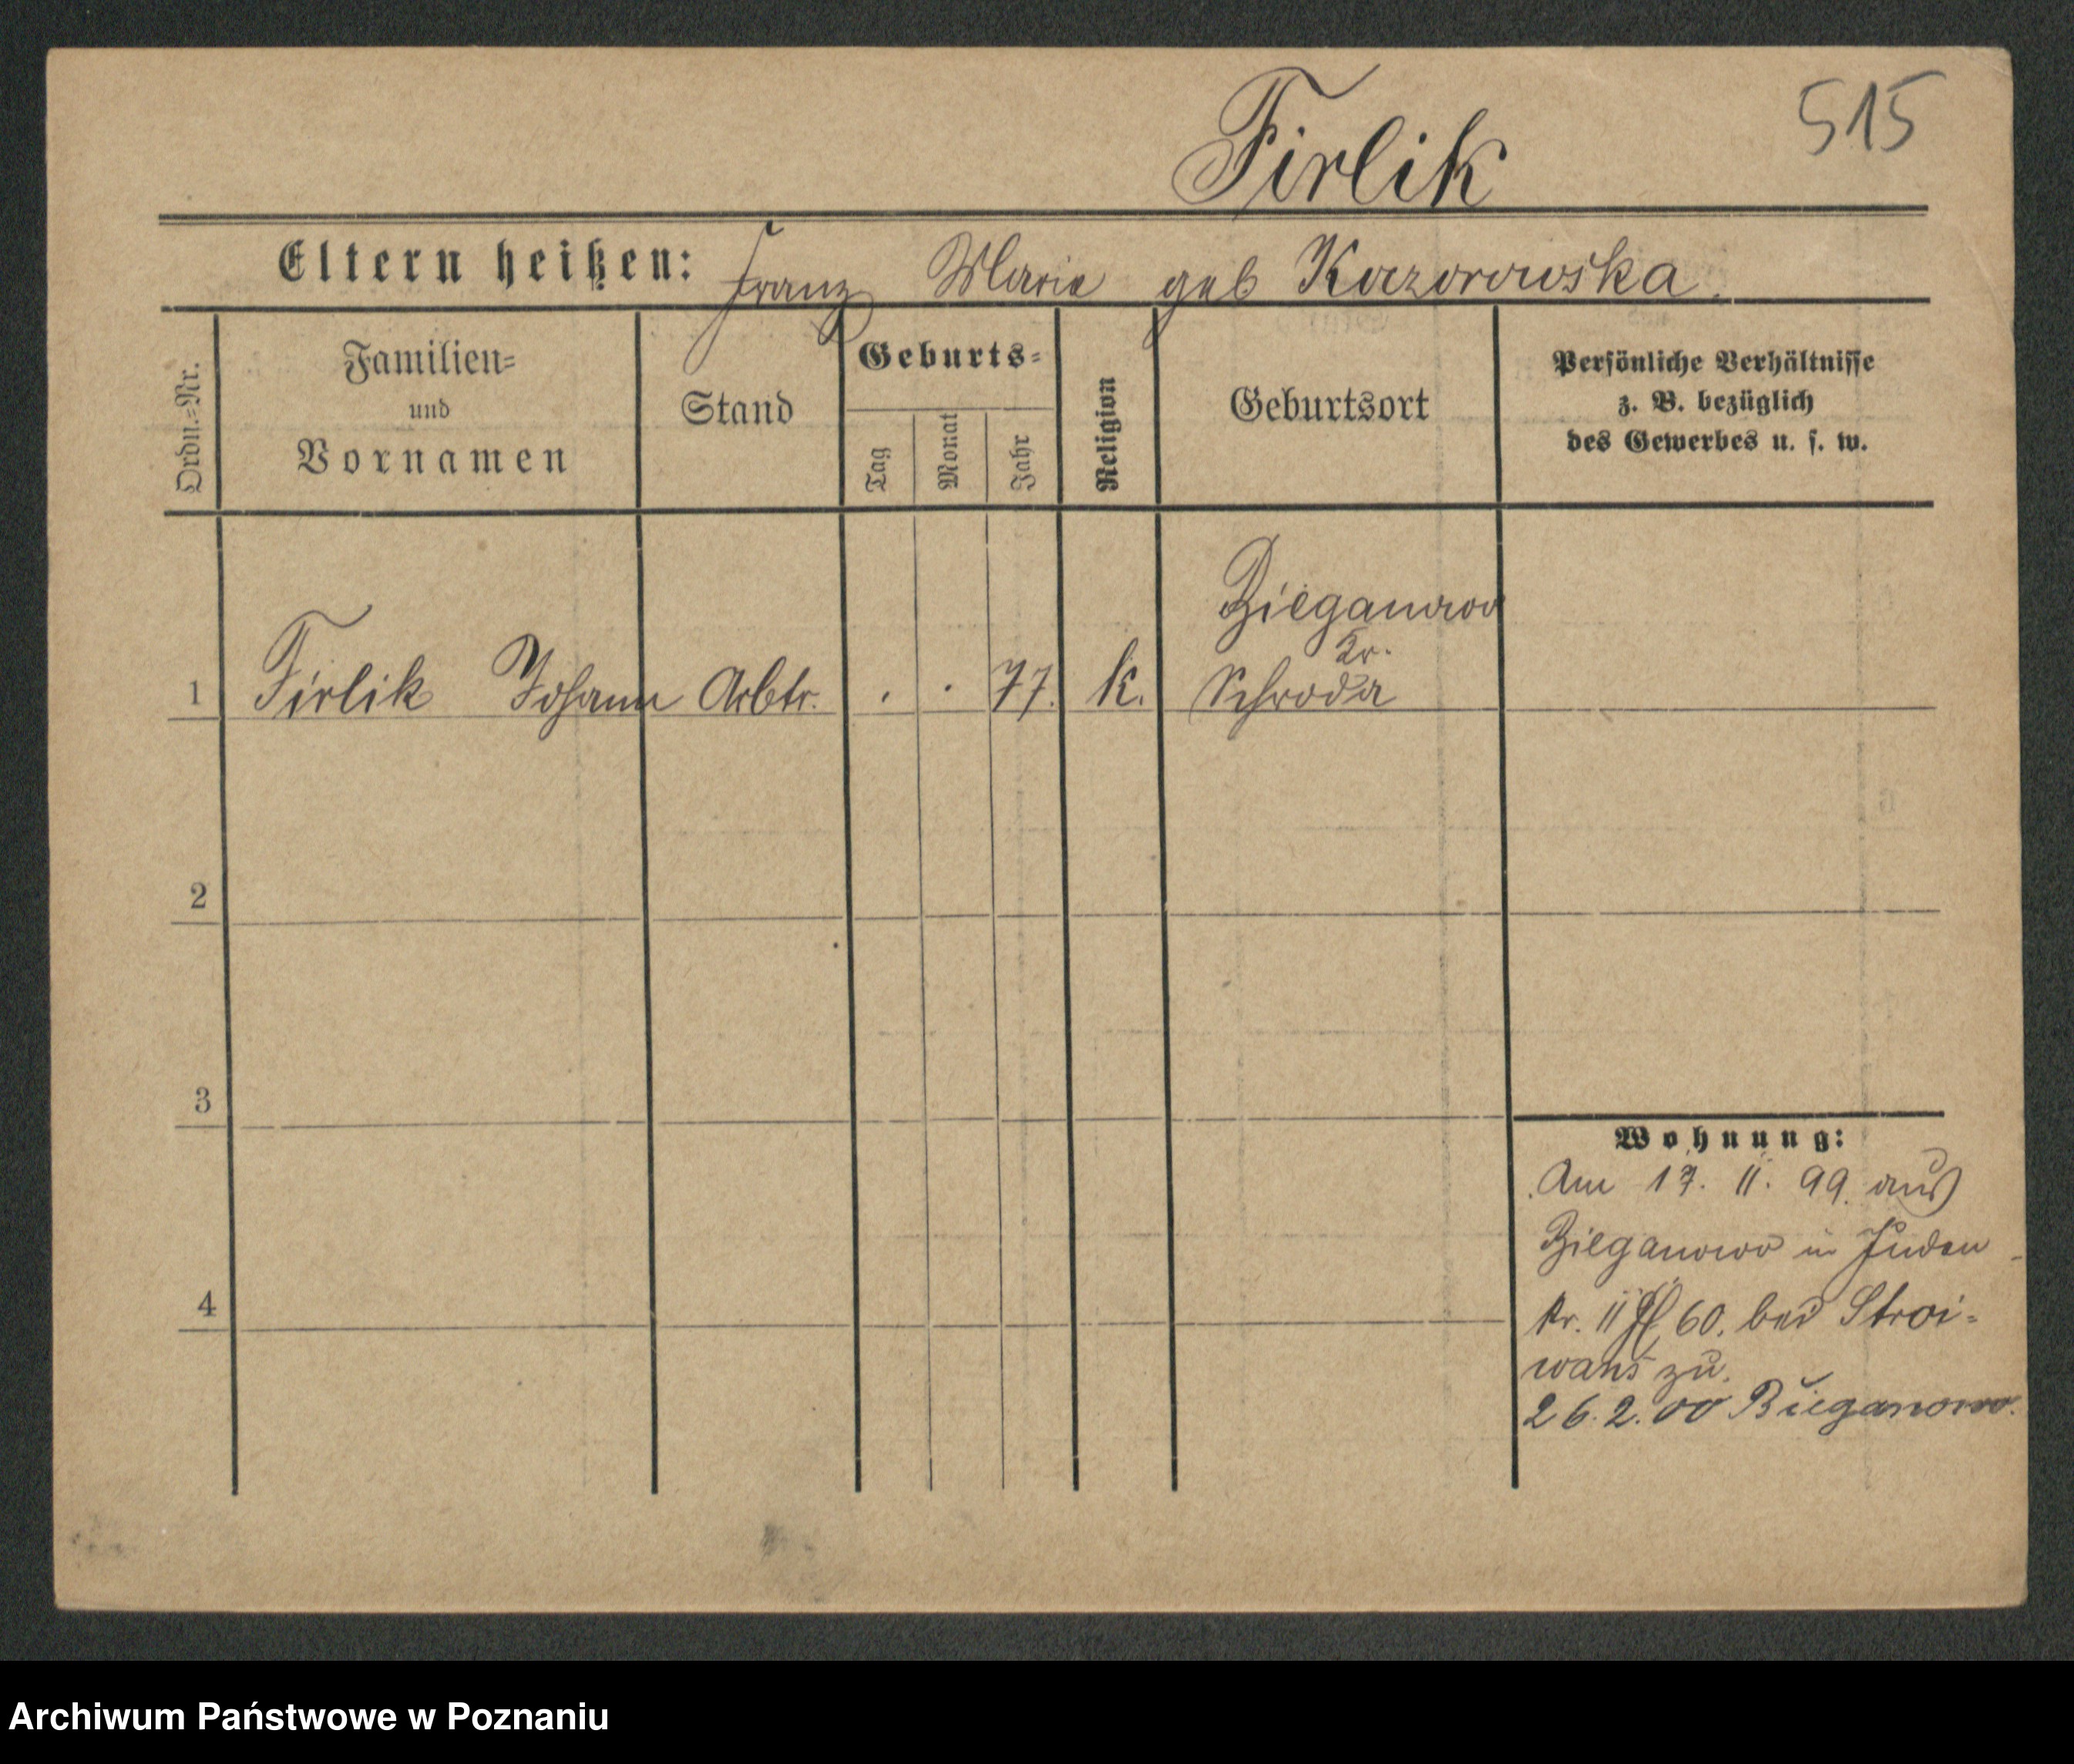 515
Firlik
Eltern heißen: Franz Marie geb Kazorowska.
Ordn.=Nr.
Familien=
und
Vornamen
Stand
Geburts=
Tag
Monat
Jahr
Religion
Geburtsort
Persönliche Verhältnisse
z. B. bezüglich
des Gewerbes u. s. w.
Bieganowo
Kr.
1 Firlik Johann Arbtr. . . 77. k. Schroda
2
3
4
Wohnung:
Am 17. 11. 99. aus
Bieganowo in Juden
kr. II 60. bei Stroi=
wans zu.
26.2.00 Bieganowo.
Archiwum Państwowe w Poznaniu